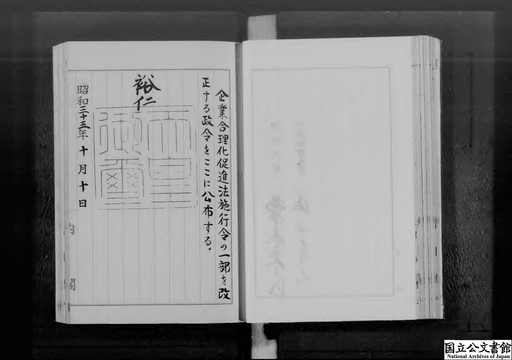 企業合理化促進法施行令の一部を改
正する政令をここに公布する。
裕仁
天皇
御璽
昭和三十五年十月十日
内閣
国立公文書館
National Archives of Japan